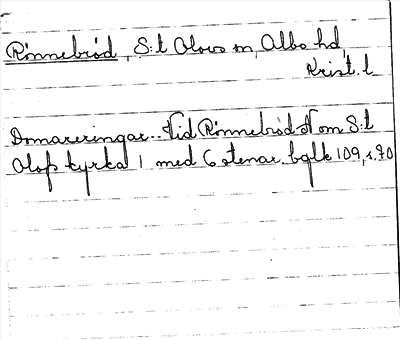 Rönnebröd, S:t Olovs sn, Albo hd,
Krist. l
Domareringar.. Vid Rönnebröd N om S:t
Olofs kyrka 1 med 6 stenar. bglk 109, s. 70